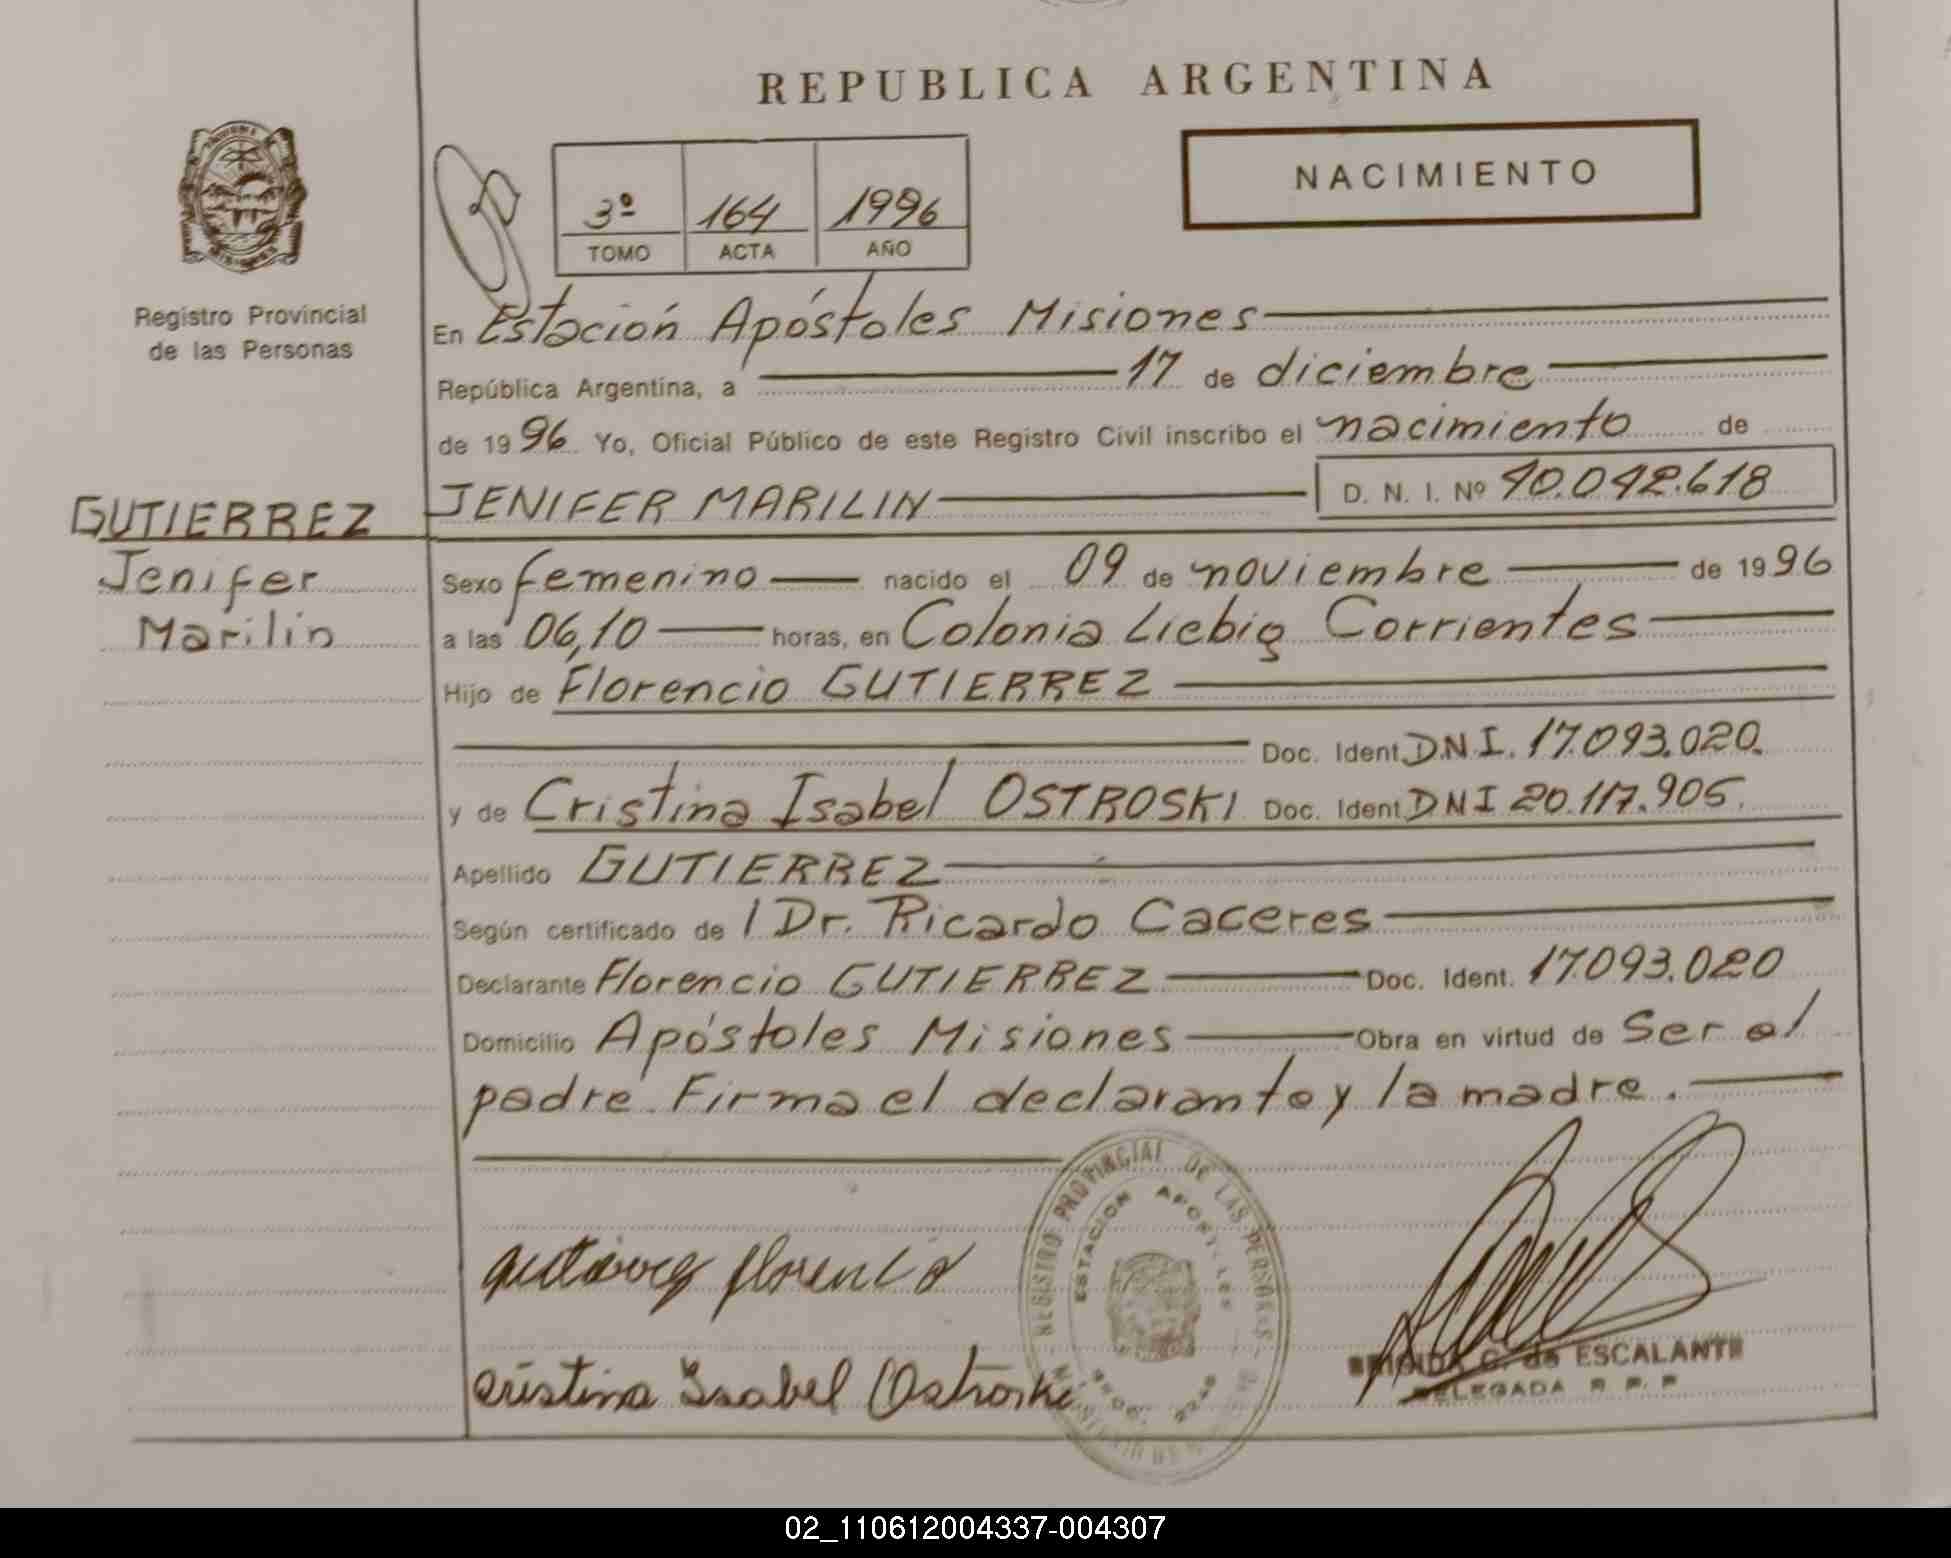 REPUBLICA ARGENTINA
NACIMIENTO
3º 164 1996
TOMO ACTA AÑO
Registro Provincial
de las Personas
En Estación Apóstoles Misiones
República Argentina, a 17 de diciembre
de 1996 Yo, Oficial Público de este Registro Civil inscribo el nacimiento de
GUTIERREZ JENIFER MARILIN D. N. I. Nº 40.042.618
Jenifer
Marilin
Sexo femenino nacido el 09 de noviembre de 1996
a las 06,10 horas, en Colonia Liebig Corrientes
Hijo de Florencio GUTIERREZ
Doc. Ident. D.N.I. 17.093.020.
y de Cristina Isabel OSTROSKI Doc. Ident. DNI 20.117.905.
Apellido GUTIERREZ
Según certificado de l Dr. Ricardo Caceres
Declarante Florencio GUTIERREZ Doc. Ident. 17.093.020
Domicilio Apóstoles Misiones Obra en virtud de Ser el
padre. Firma el declarante y la madre.
REGISTRO PROVINCIAL DE LAS PERSONAS
ESTACION APOSTOLES
gutierrez florencio
Cristina Isabel Ostroski
C. de ESCALANTE
DELEGADA R. P. P.
02_110612004337-004307